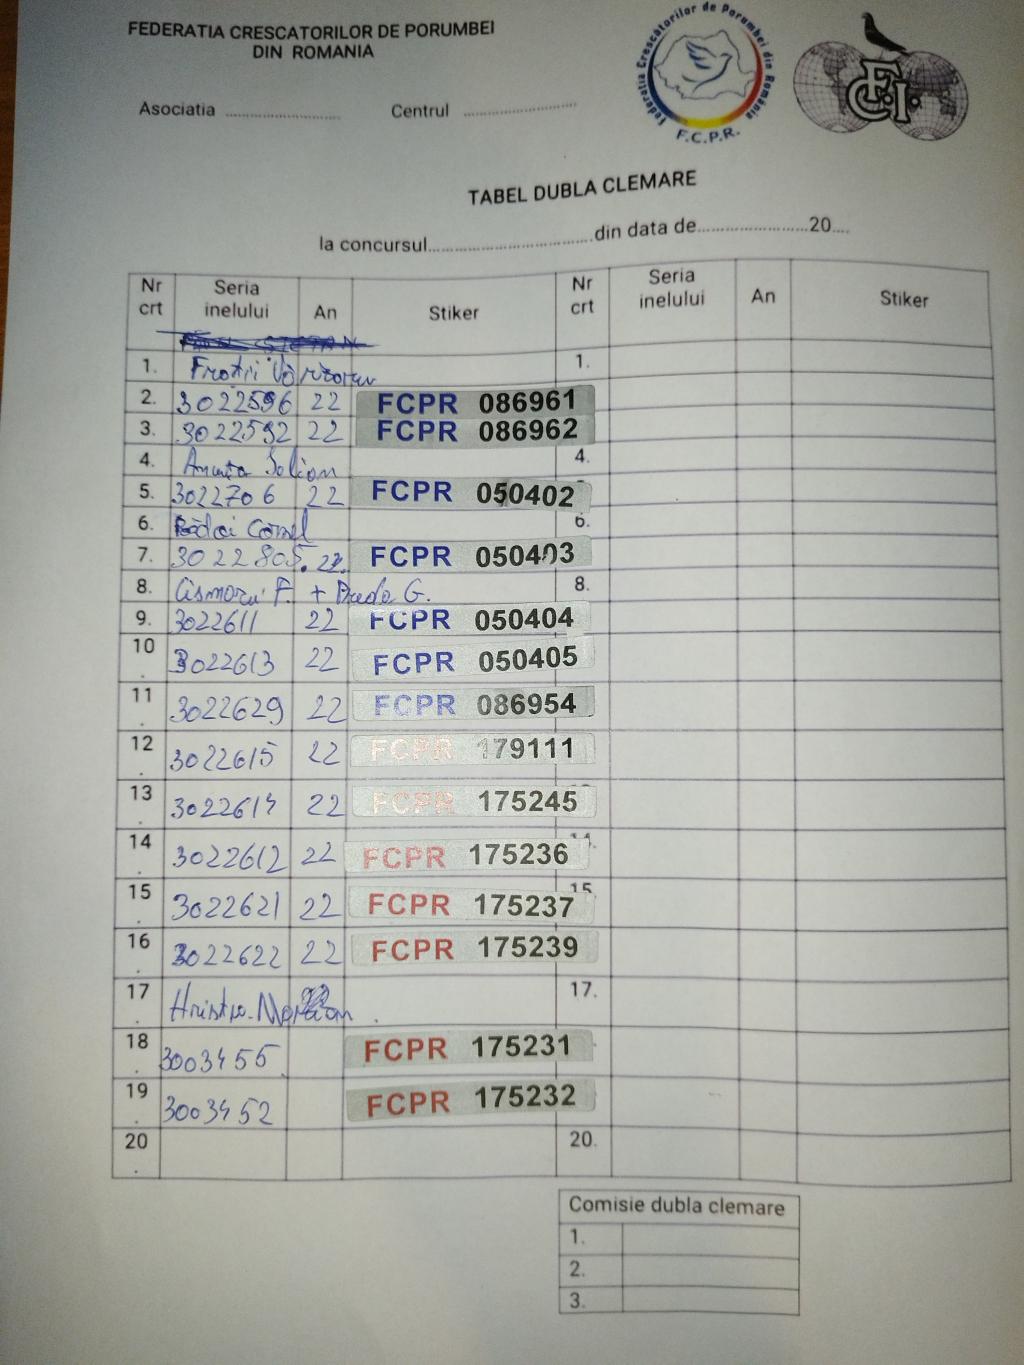 FEDERATIA CRESCATORILOR DE PORUMBEI
DIN ROMANIA
Federatia Crescătorilor de Porumbei din România
F.C.P.R.
F.C.I.
Asociatia ........................ Centrul ........................
TABEL DUBLA CLEMARE
la concursul..................................din data de.......................20....
Nr crt Seria inelului An Stiker Nr crt Seria inelului An Stiker
1. Fratii 1.
2. 3022596 22 FCPR 086961
3. 3022592 22 FCPR 086962
4. Anuta Iulian 4.
5. 3022706 22 FCPR 050402
6. Rădoi Cornel 6.
7. 3022805. 22. FCPR 050403
8. Cismaru F. + Preda G. 8.
9. 3022611 22 FCPR 050404
10. 3022613 22 FCPR 050405
11. 3022629 22 FCPR 086954
12. 3022615 22 FCPR 179111
13. 3022614 22 FCPR 175245
14. 3022612 22 FCPR 175236 14.
15 3022621 22 FCPR 175237 15
16. 3022622 22 FCPR 175239
17 Hristu. Marian. 17.
18. 3003455 FCPR 175231
19. 3003452 FCPR 175232
20. 20.
Comisie dubla clemare
1.
2.
3.